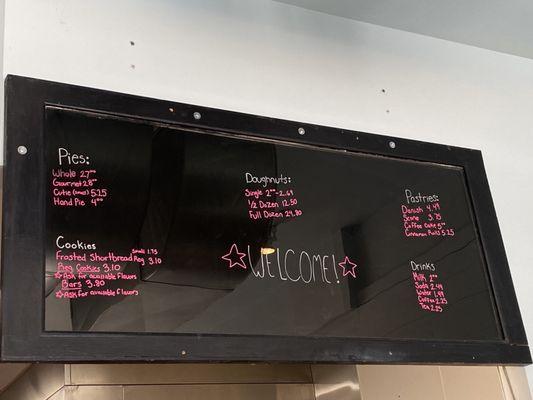 Pies:
Whole 27⁰⁰
Gourmet 28⁰⁰
Cutie (small) 5.25
Hand Pie 4⁰⁰
Cookies
Small 1.75
Frosted Shortbread Reg 3.10
Reg Cookies 3.10
Ask for available flavors
Bars 3.80
Ask for available flavors
Doughnuts:
Single 2⁰⁰-2.69
1/2 Dozen 12.50
Full Dozen 24.80
WELCOME!
Pastries:
Danish 4.49
Scone 3.75
Coffee Cake 5⁰⁰
Cinnamon Rolls 5.25
Drinks
Milk 2⁰⁰
Soda 2.49
Water 1.99
Coffee 2.25
Tea 2.25